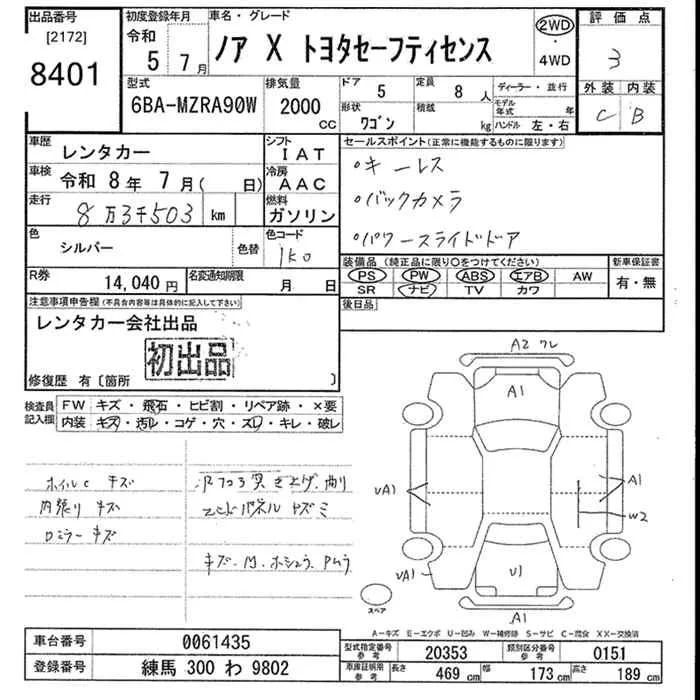 出品番号
[2172]
8401
初度登録年月
令和
5 7月
車名・グレード
ノア X トヨタセーフティセンス
2WD
・
4WD
評価点
3
外装 内装
C B
型式
6BA-MZRA90W
排気量
2000
CC
ドア
5
定員
8人
形状
ワゴン
積載
kg
ディーラー・並行
モデル年式 年
ハンドル 左・右
車歴
レンタカー
シフト
IAT
車検 令和 8年 7月( 日)
冷房
AAC
走行
8万3千503 km
燃料
ガソリン
色
シルバー
色替
色コード
1K0
R券
14,040円
名変通知期限
月 日
セールスポイント(正常に機能するものに限ります)
・キーレス
・バックカメラ
・パワースライドドア
装備品 (純正品に限り○をつけてください)
PS PW ABS エアB AW
SR ナビ TV カワ
新車保証書
有・無
後日品
注意事項申告欄(不具合内容等は具体的に記入して下さい)
レンタカー会社出品
初出品
修復歴 有〔箇所 〕
検査員記入欄
FW キズ・飛石・ヒビ割・リペア跡・×要
内装 キズ・汚れ・コゲ・穴・スレ・キレ・破レ
ホイルC キズ
内張り キズ
ロミラー キズ
A2 ワレ
A1
UA1
A1
W2
UA1
U1
A1
スペア
A-キズ E-エクボ U-凹み W-補修跡 S-サビ C-腐食 XX-交換済
車台番号 0061435
登録番号 練馬 300 わ 9802
型式指定番号 参考 20353
類別区分番号 参考 0151
車庫証明用 参考 長さ 469 cm 幅 173 cm 高さ 189 cm